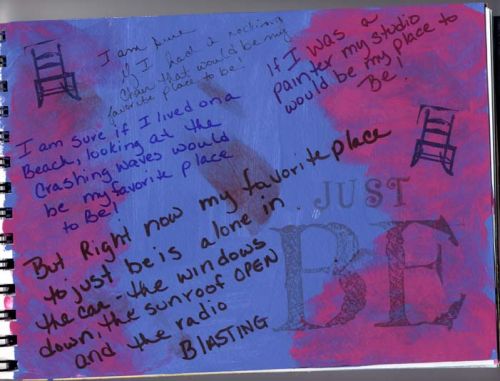 I am sure
If I had a rocking
chair that would be my
favorite place to be!
If I was a
painter my studio
would be my place to
Be!
I am sure if I lived on a
Beach, looking at the
Crashing waves would
be my favorite place
to Be!
But Right now my favorite place
to just be is alone in
the car - the windows
down, the sunroof OPEN
and the radio
BLASTING
JUST
BE